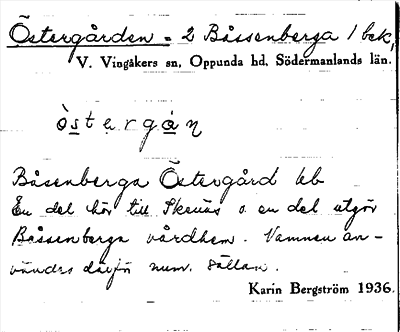 Östergården = 2 Båssenberga 1 bek,
V. Vingåkers sn, Oppunda hd, Södermanlands län.
òstergá̱n
Båsenberga Östergård kb
En del hör till Skenäs o. en del utgör
Båssenberga vårdhem. Namnen an-
vändes därför num. sällan.
Karin Bergström 1936.